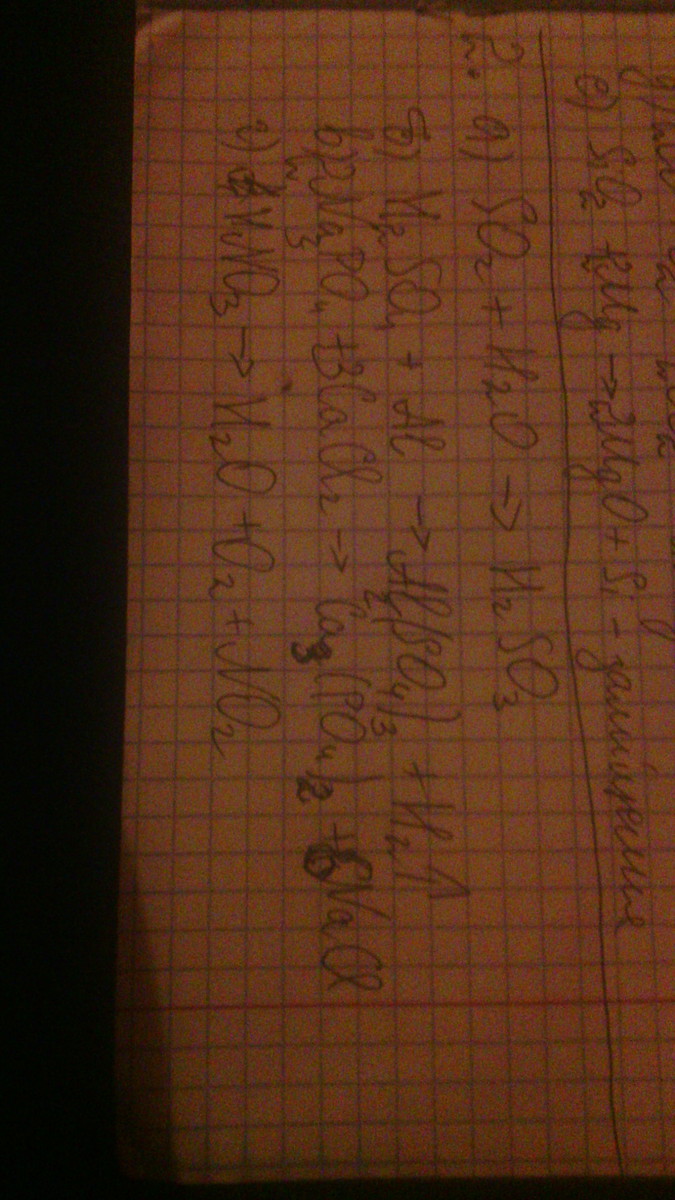 е) SiO₂ + 2Mg → 2MgO + Si - замещение
2. а) SO₂ + H₂O → H₂SO₃
б) H₂SO₄ + Al → Al₂(SO₄)₃ + H₂↑
в) 2Na₃PO₄ + 3CaCl₂ → Ca₃(PO₄)₂ + 6NaCl
г) HNO₃ → H₂O + O₂ + NO₂